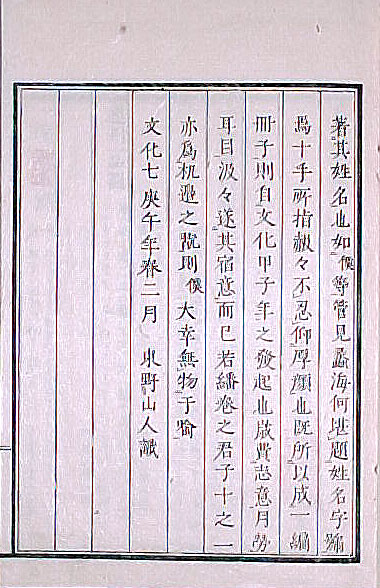 著其姓名也如僕等管見蠡海何堪題姓名字號
爲十手所指赧々不忍仰厚顔也既所以成一編
冊子則自文化甲子年之發起也歳費志意月勞
耳目汲々遂其宿意而已若繙卷之君子十之一
亦爲机邊之翫則僕大幸無物于喩
文化七庚午年春二月　東野山人識